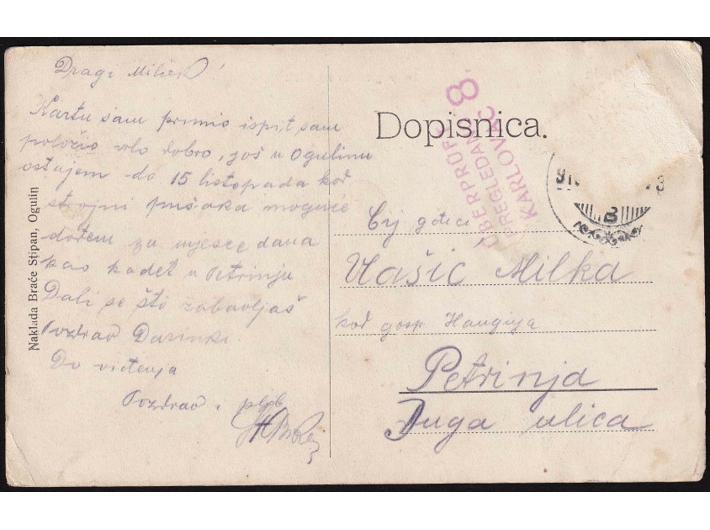 Dragi Milček!
Kartu sam primio ispit sam
položio vrlo dobro, još u Ogulinu
ostajem do 15 listopada kod
strojni pušaka moguće
dođem za mjesec dana
kao kadet u Petrinju
Dali se što zabavljaš
Pozdrav Darinki.
Do viđenja
Pozdrav i
Naklada Braće Stjipan, Ogulin
Dopisnica.
ÜBERPRÜFT
PREGLEDANO
KARLOVAC
8.
B
Vašić Milka
kod gosp.
Petrinja
Duga ulica